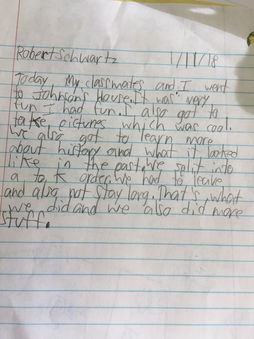 Robert Schwartz 1/11/18
Today My classmates and I went
to Johnson's House. It was very
fun I had fun. I also got to
take pictures which was cool.
We also got to learn more
about history and what it looked
like in the past. We split into
a order. We had to leave
and also not stay long. That's what
we did and we also did more
stuff.